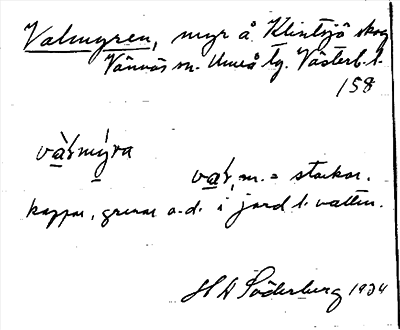 Valmyren, myr å Klintsjö skog
Vännäs sn. Umeå tg. Västerb. l.
158
vàlmýra
val, m. = stockar.
kappar, grenar o.d. i jord l. vatten.
H A Söderberg 1934